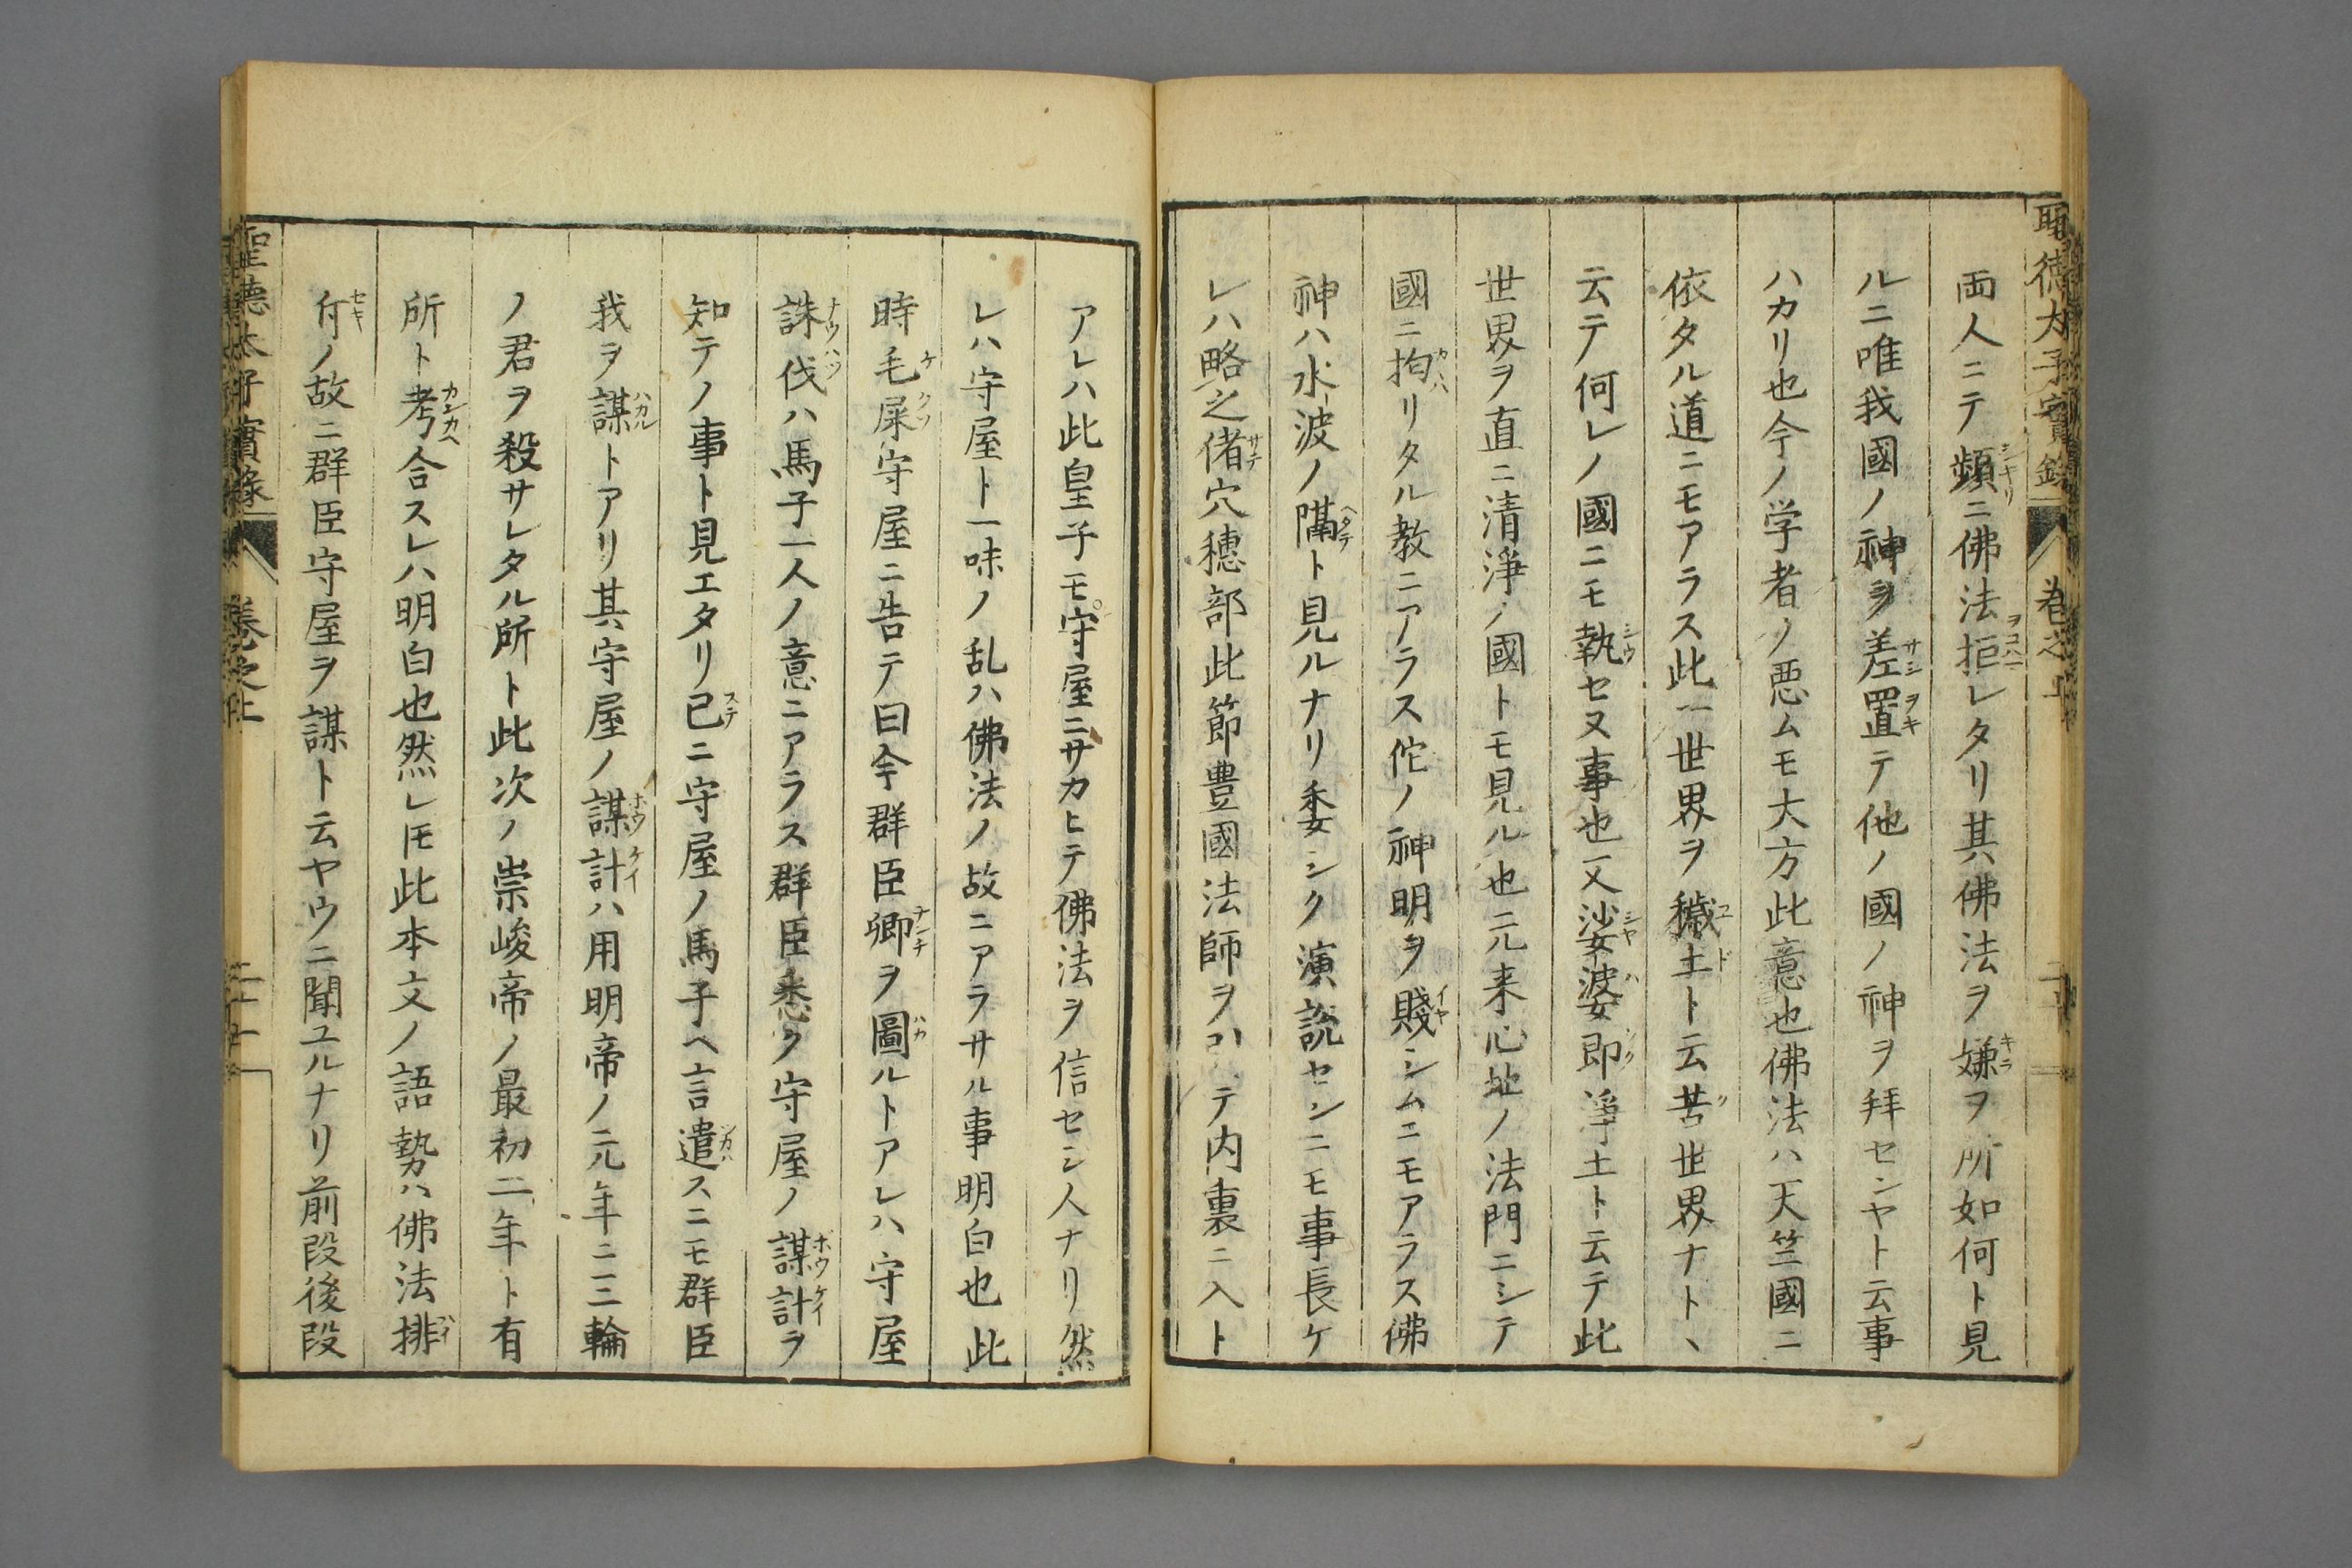 両人ニテ頻ニ佛法拒レタリ其佛法ヲ嫌ヲ所如何ト見
ルニ唯我國ノ神ヲ差置テ他ノ國ノ神ヲ拜センヤト云事
ハカリ也今ノ学者ノ悪ムモ大方此意也佛法ハ天竺國ニ
依タル道ニモアラス此一世界ヲ穢土ト云苦世界ナト丶
云テ何レノ國ニモ執セヌ事也又娑婆即淨土ト云テ此
世界ヲ直ニ清淨ノ國トモ見ル也元来心地ノ法門ニシテ
國ニ拘リタル教ニアラス佗ノ神明ヲ賤シムニモアラス佛
神ハ水波ノ隔ト見ルナリ委シク演説センニモ事長ケ
レハ略之偖穴穗部此節豊國法師ヲ テ内裏ニ入ト
アレハ此皇子モ守屋ニサカヒテ佛法ヲ信セシ人ナリ然
レハ守屋ト一味ノ乱ハ佛法ノ故ニアラサル事明白也此
時毛屎守屋ニ告テ曰今群臣卿ヲ圖ルトアレハ守屋
誅伐ハ馬子一人ノ意ニアラス群臣悉ク守屋ノ謀計ヲ
知テノ事ト見エタリ已ニ守屋ノ馬子ヘ言遣スニモ群臣
我ヲ謀トアリ其守屋ノ謀計ハ用明帝ノ元年ニ三輪
ノ君ヲ殺サレタル所ト此次ノ崇峻帝ノ最初二年ト有
所ト考合スレハ明白也然レ𪜈此本文ノ語勢ハ佛法排
斥ノ故ニ群臣守屋ヲ謀ト云ヤウニ聞ユルナリ前段後段
聖德太子實錄
卷之上
二十七